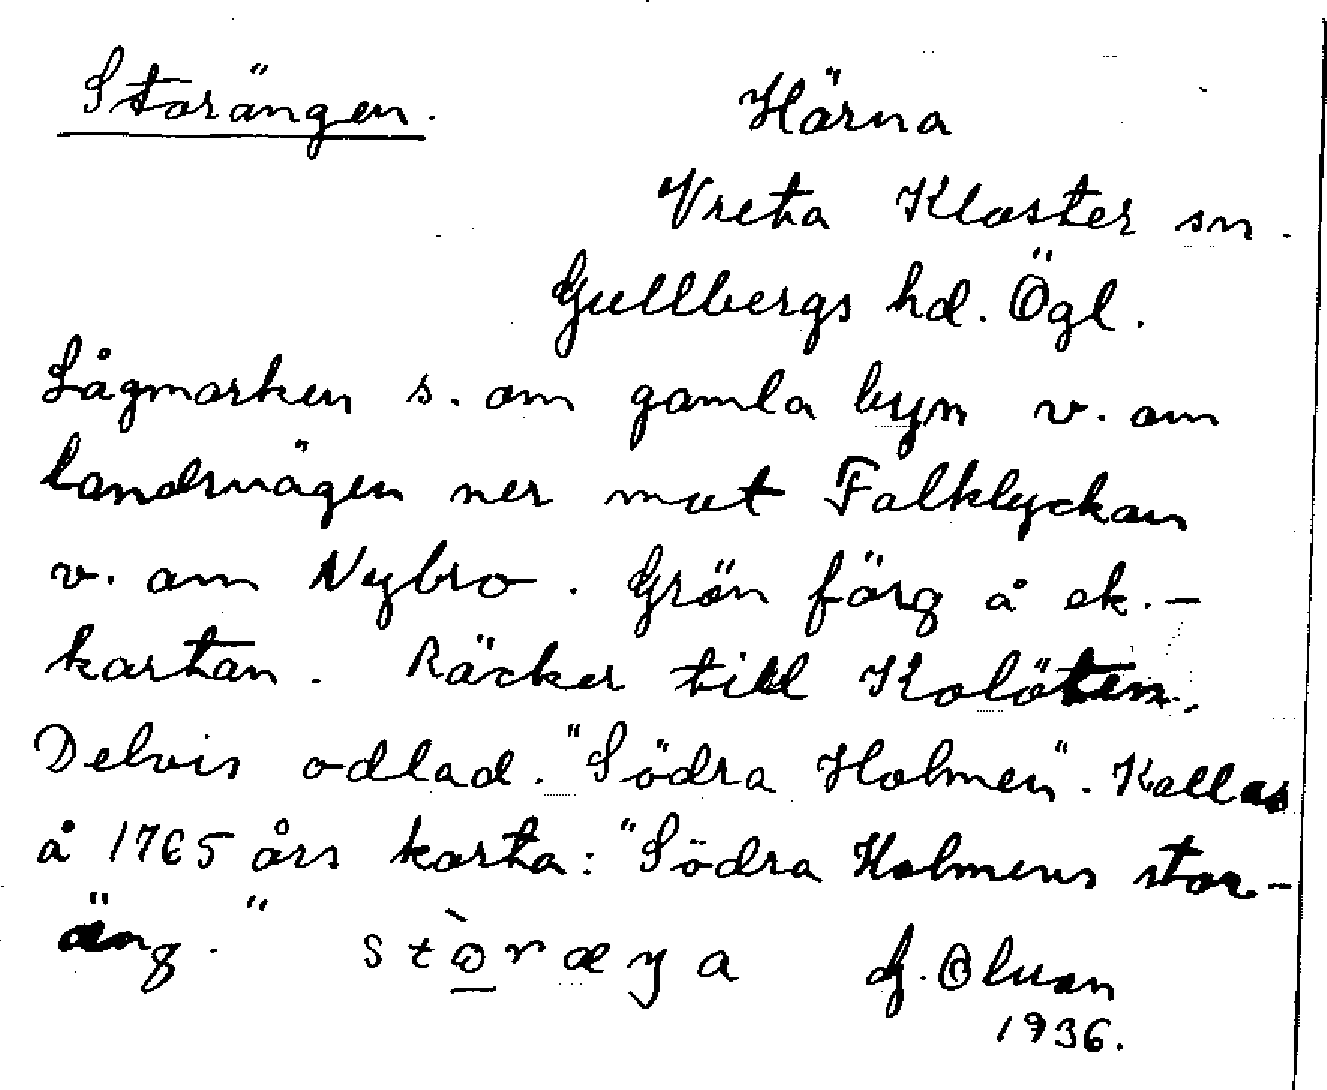 Storängen.
Härna
Vreta Kloster sn.
Gullbergs hd. Ögl.
Lågmarken s. om gamla byn v. om
landsvägen ner mot Falklyckan
v. om Nybro. Grön färg å ek.-
kartan. Räcker till Kolöten.
Delvis odlad. "Södra Holmen". Kallas
å 1765 års karta: "Södra Holmens stor-
äng."
1936.